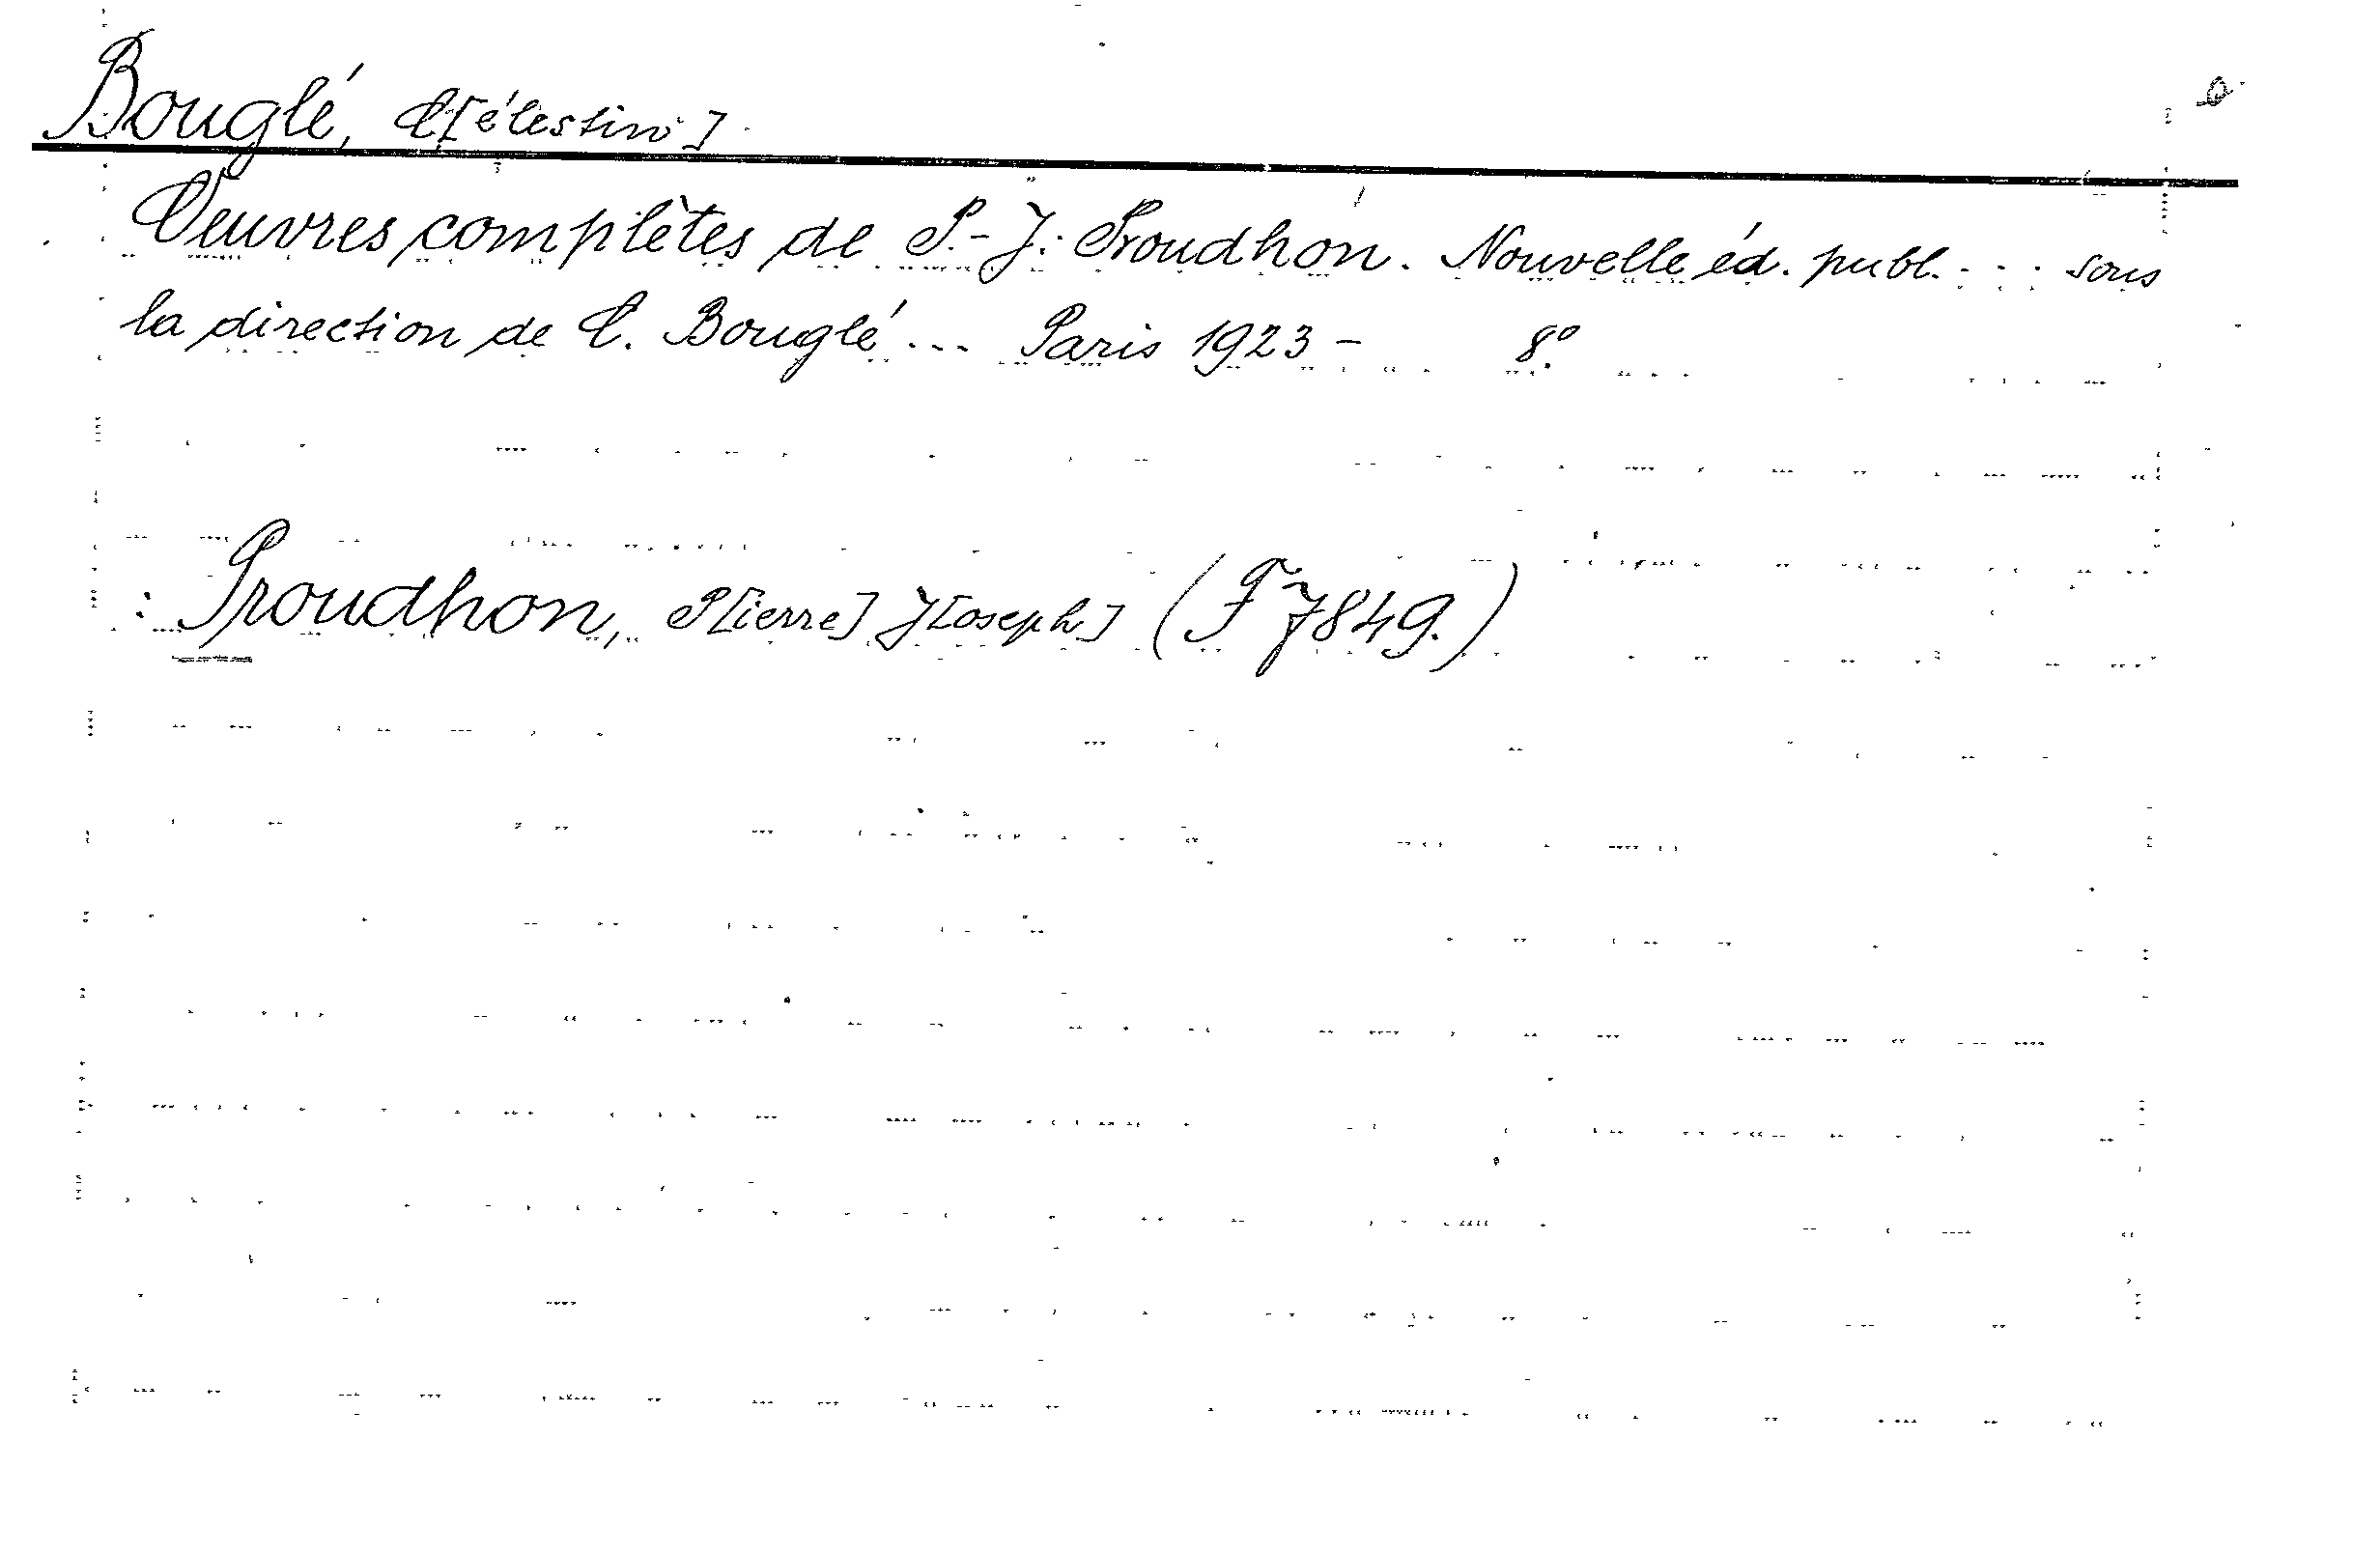 Bouglé, C[élestin]
Oeuvres complètes de P.-J. Proudhon. Nouvelle éd. publ. ... sous
la direction de C. Bouglé ... Paris 1923 - 8º
: Proudhon, P[ierre] J[oseph] (F 7849.)